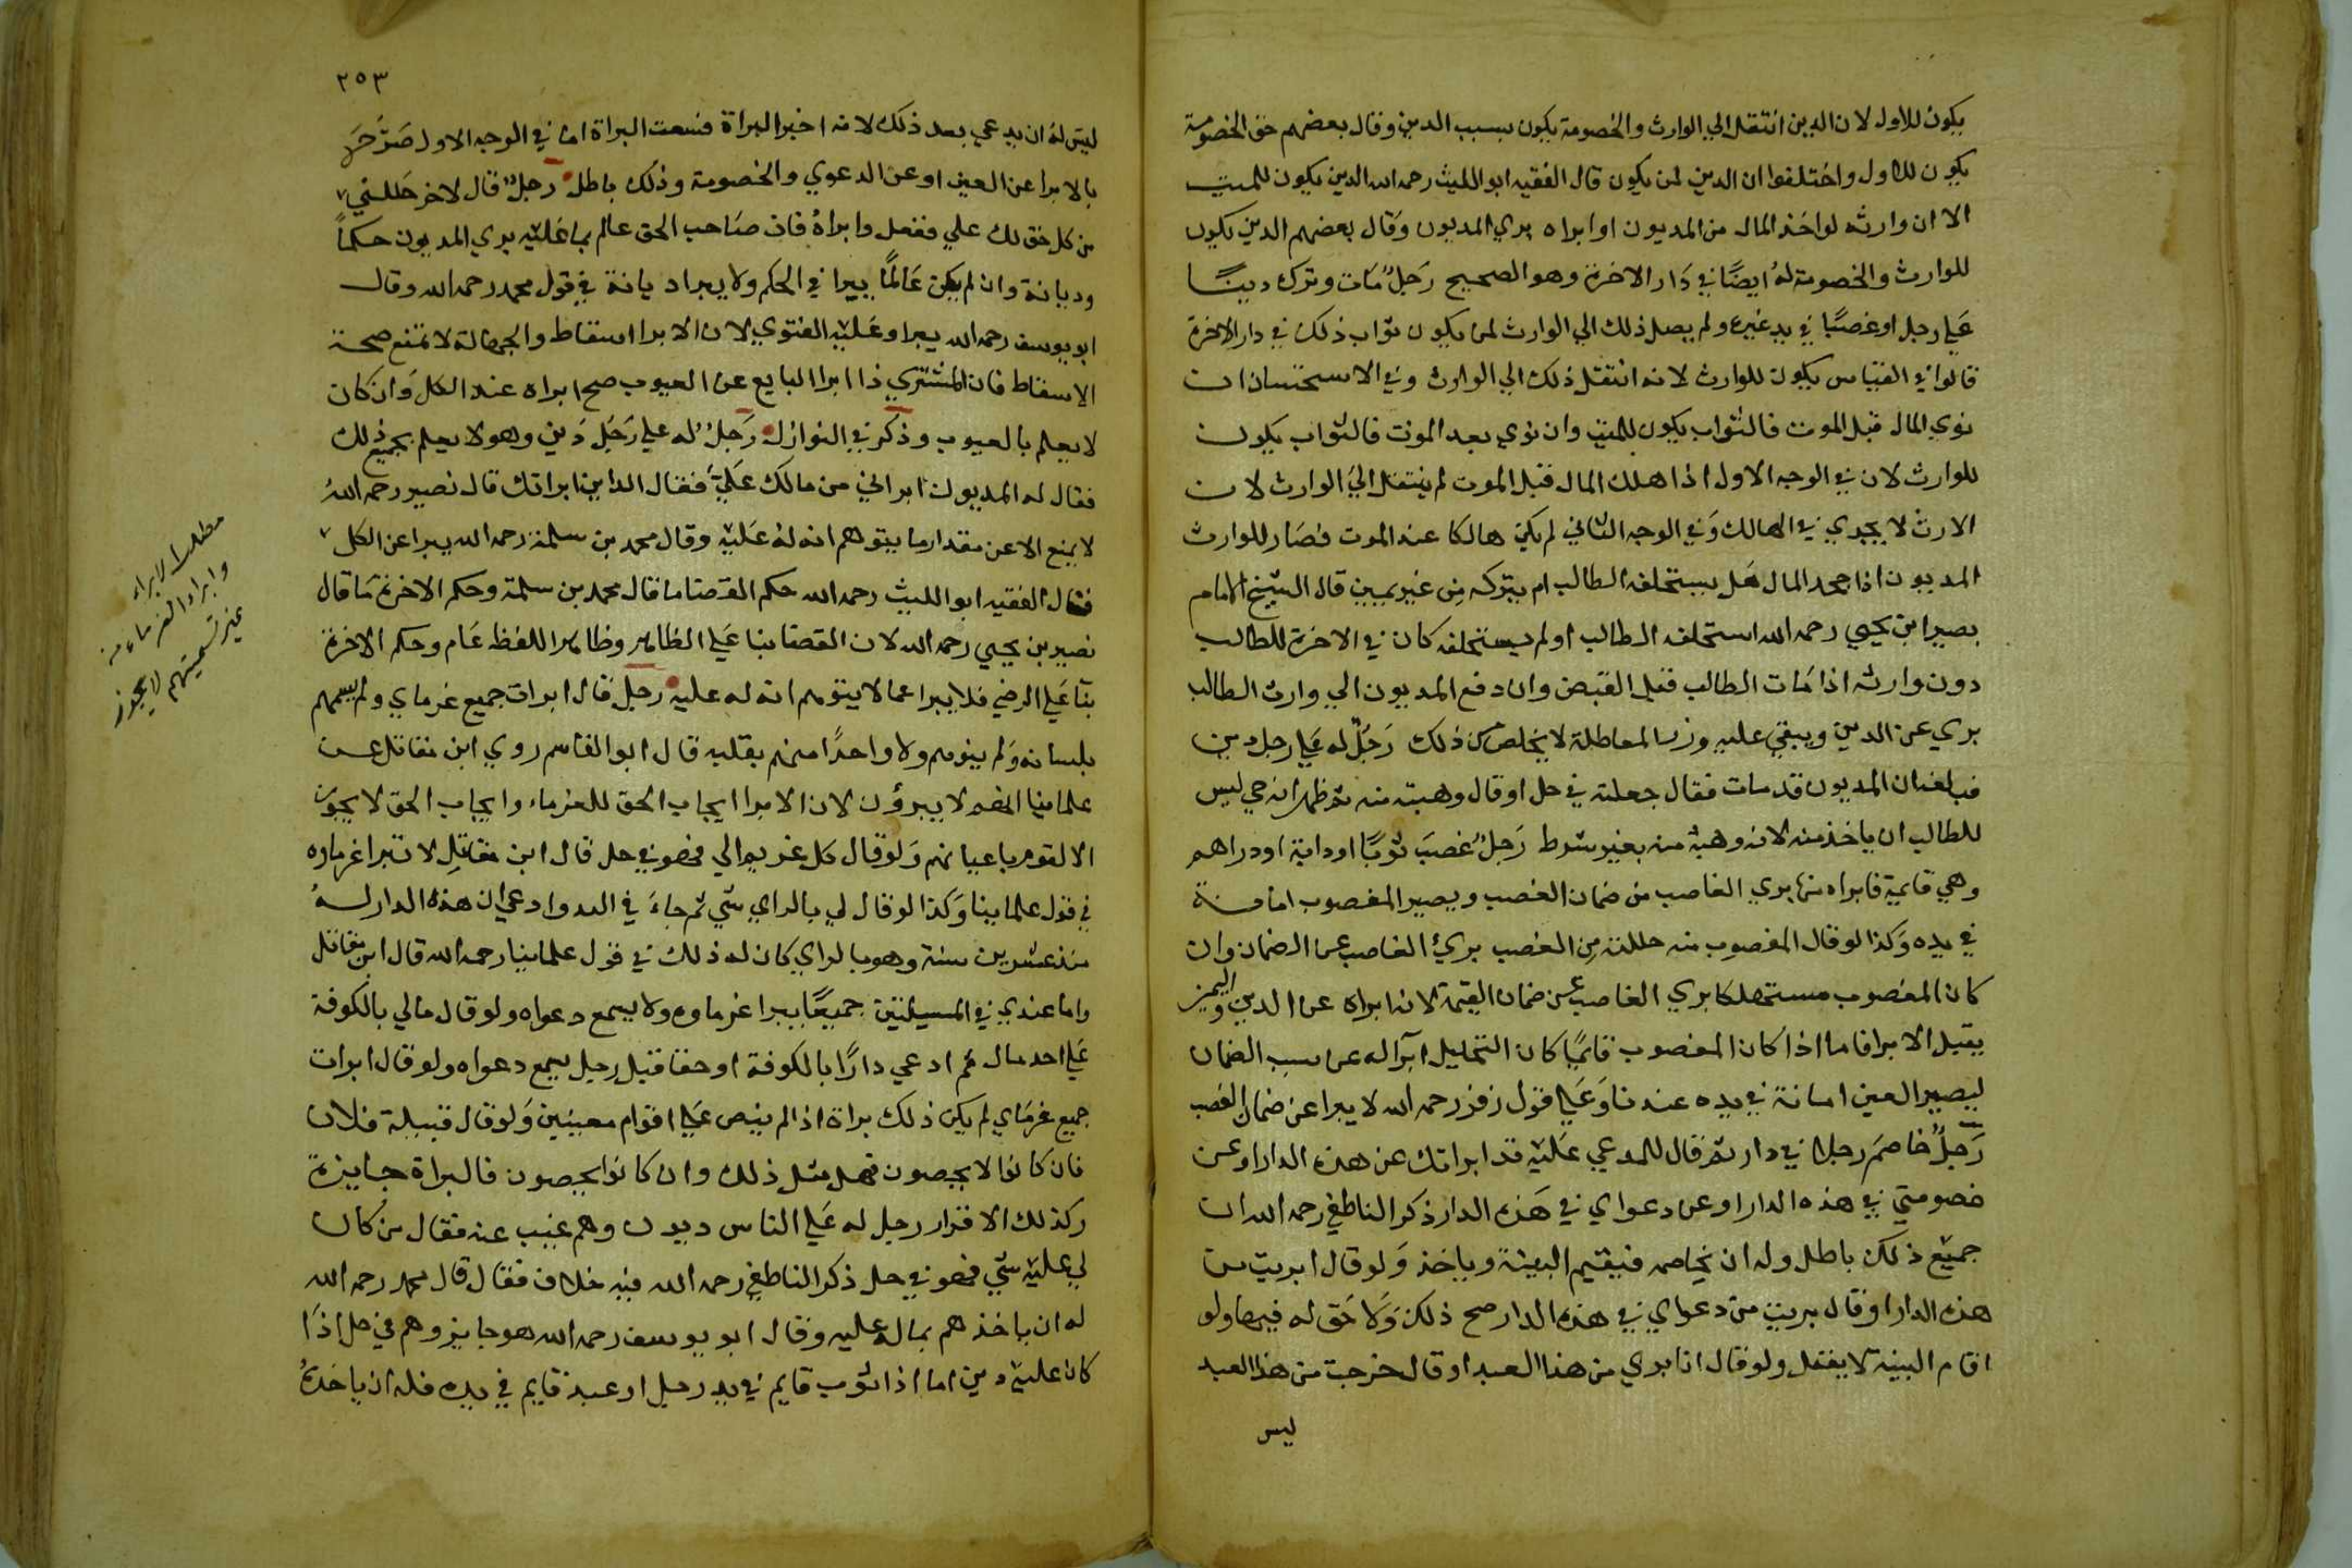 يكون للاول لان الدين انتقل الي الوارث والخصومة يكون بسبب الدين وقال بعضهم حق الخصومة
يكون للاول واختلفوا ان الدين لمن يكون قال الفقيه ابو الليث رحمه الله الدين يكون للميت
الا ان وارثه لو اخذ المال من المديون او ابراه بري المديون وقال بعضهم الدين يكون
للوارث والخصومة له ايضًا في دار الاخرة وهو الصحيح رجل مات وترك دينًا
علي رجل او غصبًا في يد غيره ولم يصل ذلك الي الوارث لمن يكون ثواب ذلك في دار الاخرة
قالوا في القياس يكون للوارث لانه انتقل ذلك الي الوارث وفي الاستحسان ان
نوي المال قبل الموت فالثواب يكون للميت وان نوي بعد الموت فالثواب يكون
للوارث لان في الوجه الاول اذا هلك المال قبل الموت لم ينتقل الي الوارث لان
الارث لا يجري في الهالك وفي الوجه الثاني لم يكن هالكا عند الموت فصار للوارث
المديون اذا جحد المال هل يستحلفه الطالب ام يتركه من غير يمين قال الشيخ الامام
بصير ابن يحيي رحمه الله استحلفه الطالب او لم يستحلفه كان في الاخرة للطالب
دون وارثه اذا مات الطالب قبل القبض وان دفع المديون الي وارث الطالب
بري عن الدين ويبقي عليه وزر المماطلة لا يخلص من ذلك رجل له علي رجل دين
فبلغه ان المديون قد مات فقال جعلته في حل او قال وهبته منه ثم ظهر انه حي ليس
للطالب ان ياخذ منه لانه وهبه منه بغير شرط رجل غصب ثوبًا او دابة او دراهم
وهي قايمة فابراه منها بري الغاصب من ضمان الغصب ويصير المغصوب امانة
في يده وكذا لو قال المغصوب منه حللته من الغصب بريء الغاصب عن الضمان وان
كان المغصوب مستهلكا بري الغاصب عن ضمان القيمة لانه ابراه عن الدين والدين
يقبل الابرا فاما اذا كان المغصوب قائمًا كان التحليل ابرا له عن سبب الضمان
ليصير العين امانة في يده عندنا وعلي قول زفر رحمه الله لا يبرا عن ضمان الغصب
رجل خاصم رجلا في دار ثم قال للمدعي عليه قد ابراتك عن هذه الدار او عن
خصومتي في هذه الدار او عن دعواي في هذه الدار ذكر الناطفي رحمه الله ان
جميع ذلك باطل وله ان يخاصمه فيقيم البينة وياخذ ولو قال ابريت من
هذه الدار او قال بريت من دعواي في هذه الدار صح ذلك ولا حق له فيها ولو
اقام البينة لا يقبل ولو قال انا بري من هذا العبد او قال خرجت من هذا العبد
ليس
٢٥٣
ليس له ان يدعي بعد ذلك لانه اخبر البراة فسمعت البراة اما في الوجه الاول صرح
بالابرا عن العين او عن الدعوي والخصومة وذلك باطل رجل قال لاخر حللني
من كل حق لك علي ففعل وابراه فان صاحب الحق عالم بما عليه بري المديون حكمًا
وديانة وان لم يكن عالمًا يبرا في الحكم ولا يبرا ديانة في قول محمد رحمه الله وقال
ابو يوسف رحمه الله يبرا وعليه الفتوي لان الابرا اسقاط والجهالة لا تمنع صحة
الاسقاط فان المشتري اذا ابرا البايع عن العيوب صح ابراه عند الكل وان كان
لا يعلم بالعيوب وذكر في النوازل رجل له علي رجل دين وهو لا يعلم بجميع ذلك
فقال له المديون ابراني من مالك علي فقال الداين ابراتك قال نصير رحمه الله
لا يمنع الا عن مقدار ما يتوهم انه له عليه وقال محمد بن سلمة رحمه الله يبرا عن الكل
فقال الفقيه ابو الليث رحمه الله حكم القضا ما قال محمد بن سلمة وحكم الاخرة ما قال
نصير بن يحيي رحمه الله لان القضا بنا علي الظاهر وظاهر اللفظ عام وحكم الاخرة
بنآ علي الرضي فلا يبرا عما لا يتوهم انه له عليه رجل قال ابرات جميع غرماي ولم يسمهم
بلسانه ولم ينوهم ولا واحدًا منهم بقلبه قال ابو القاسم روي ابن مقاتل عن
علماينا انهم لا يبرؤن لان الابرا ايجاب الحق للغرماء وايجاب الحق لا يجوز
الا لقوم باعيانهم ولو قال كل غريم لي فهو في حل قال ابن مقاتل لا تبرا غرماوه
في قول علماينا وكذا لو قال لي بالراي شي ثم جاء في الدد وادعي ان هذه الدار له
منذ عشرين سنة وهو بالراي كان له ذلك في قول علماينا رحمه الله قال ابن مقاتل
واما عندي في المسيلتين جميعًا يبرا غرماوه ولا يسمع دعواه ولو قال مالي بالكوفة
علي احد مال ثم ادعي دارًا بالكوفة او حقا قبل رجل يسمع دعواه ولو قال ابرات
جميع غرماي لم يكن ذلك براة اذا لم ينص علي اقوام معينين ولو قال قبيلة فلان
فان كانوا لا يحصون فهل مثل ذلك وان كانوا يحصون فالبراة جايزة
وكذلك الاقرار رجل له علي الناس ديون وهم غيب عنه فقال من كان
لي عليه شي فهو في حل ذكر الناطفي رحمه الله فيه خلاف فقال قال محمد رحمه الله
له ان ياخذهم بماله عليه وقال ابو يوسف رحمه الله هو جايز وهم في حل اذا
كان عليه دين اما اذا ثوب قايم في يد رجل او عبد قايم في يده فله ان ياخذه
مطلب الابراء
وابراء الغرماء من
غير تسميتهم لا يجوز